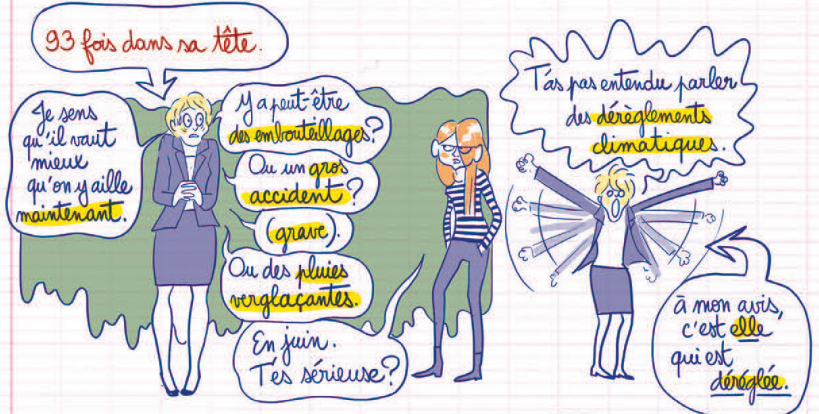 93 fois dans sa tête.
Je sens
qu'il vaut
mieux
qu'on y aille
maintenant.
Y a peut-être
des embouteillages?
Ou un gros
accident?
(grave).
Ou des pluies
verglaçantes.
En juin.
T'es sérieuse?
T'as pas entendu parler
des dérèglements
climatiques.
à mon avis,
c'est elle
qui est
déréglée.